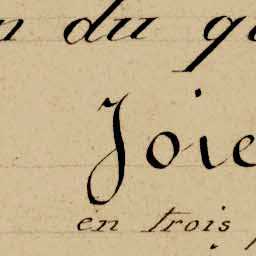 n du qu
Joie
en trois